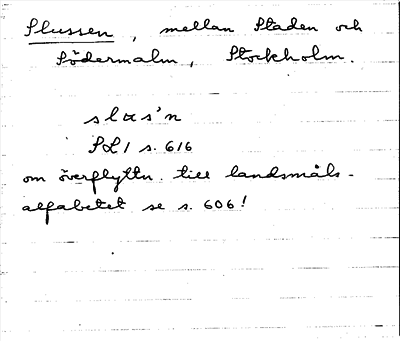 Slussen, mellan Staden och
Södermalm, Stockholm.
slɑs'n
SL1 s. 616
om överflyttn. till landsmåls-
alfabetet se s. 606!